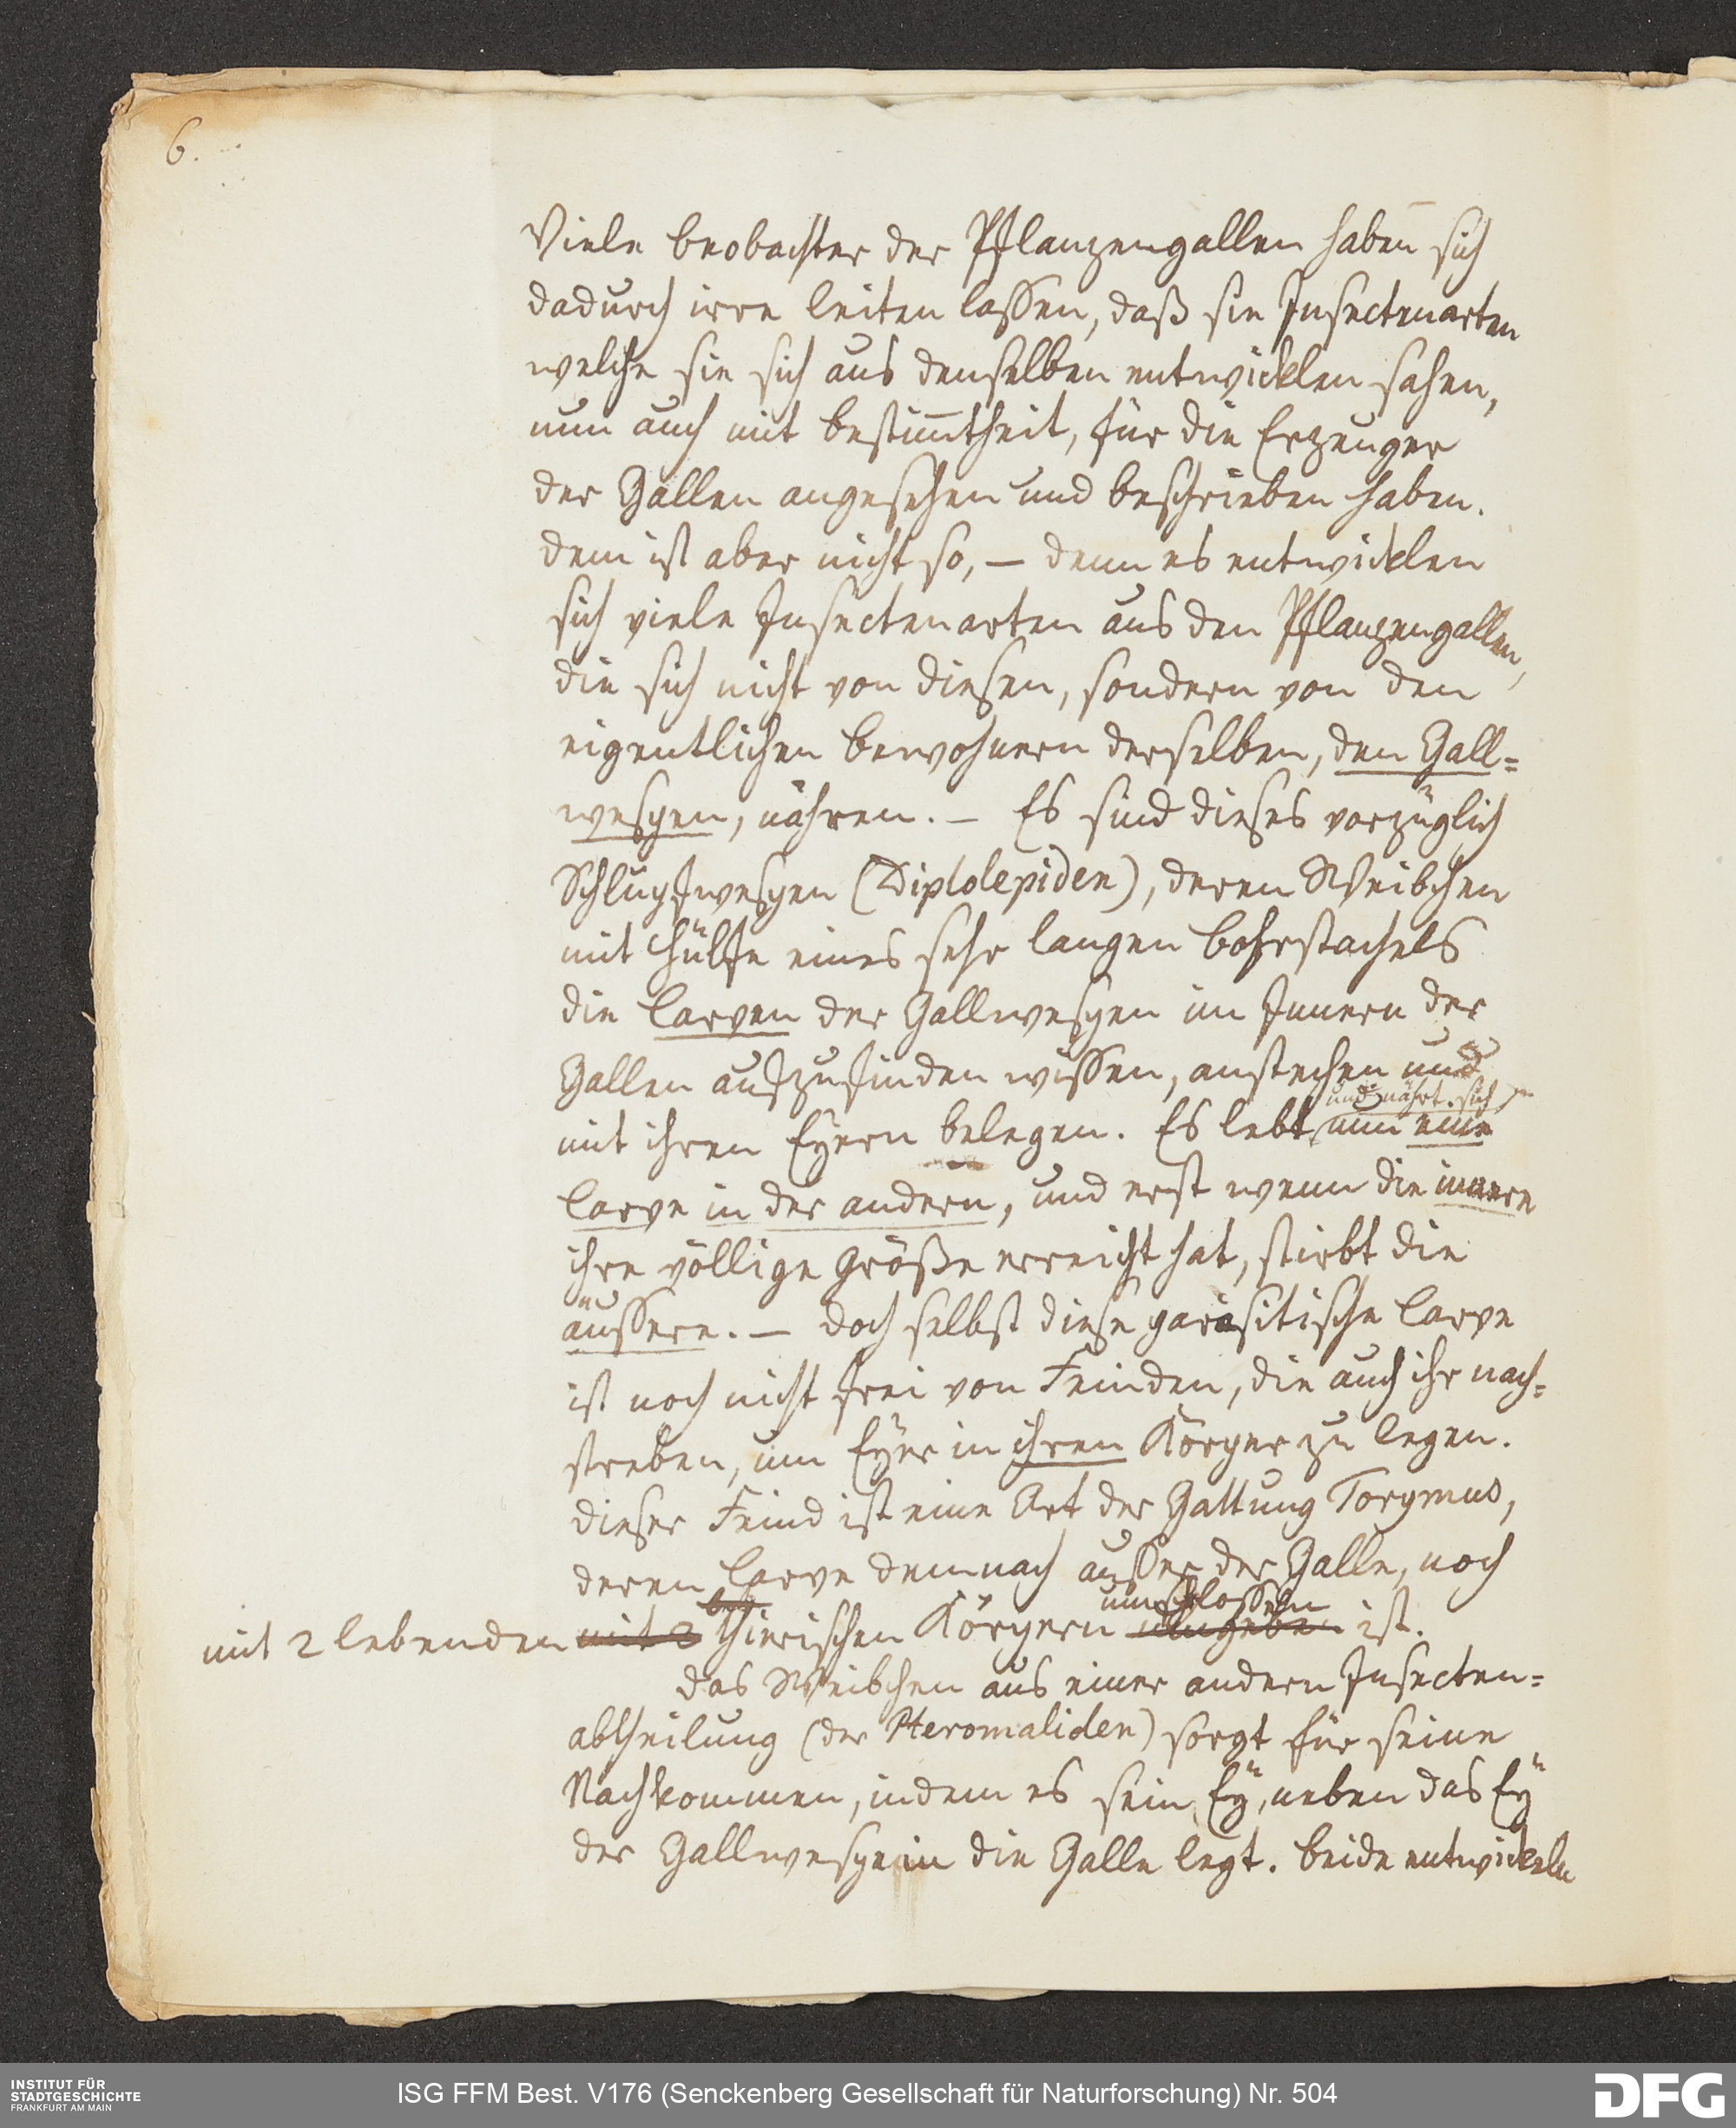 6.
Viele beobachter der Pflanzengallen haben sich
dadurch irre leiten lassen, daß sie Insectenarten
welche sie sich aus denselben entwicklen sahen,
nun auch mit bestim̅theit, für die Erzeuger
der Gallen angesehen und beschrieben haben.
dem ist aber nicht so, – denn es entwicklen
sich viele Insectenarten aus den Pflanzengallen,
die sich nicht von diesen, sondern von den
eigentlichen bewohnern derselben, den Gall=
wespen, nähren. – Es sind dieses vorzüglich
Schlupfwespen (Diplolepiden), deren Weibchen
mit Hülfe eines sehr langen bohrstachels
die Larven der Gallwespen im Innern der
Gallen aufzufinden wissen, anstechen und
und nährt sich
mit ihren Eyern belegen. Es lebt nun eine
Larve in der andern, und erst wenn die innere
ihre völlige größe erreicht hat, stirbt die
äussere. – doch selbst diese parasitische Larve
ist noch nicht frei von Feinden, die auch ihr nach=
streben, um Eyer in ihren Körper zu legen.
dieser Feind ist eine Art der Gattung Torymus,
deren Larve demnach ausser der Galle, noch
umschlossen
mit 2 lebenden mit 2 thierischen Körpern umgeben ist.
das Weibchen aus einer andern Insecten=
abtheilung (der Pteromaliden) sorgt für seine
Nachkommen, indem es sein Eÿ, neben das Eÿ
der Gallwespe in die Galle legt. beide entwickeln
INSTITUT FÜR
STADTGESCHICHTE
FRANKFURT AM MAIN
ISG FFM Best. V176 (Senckenberg Gesellschaft für Naturforschung) Nr. 504
DFG